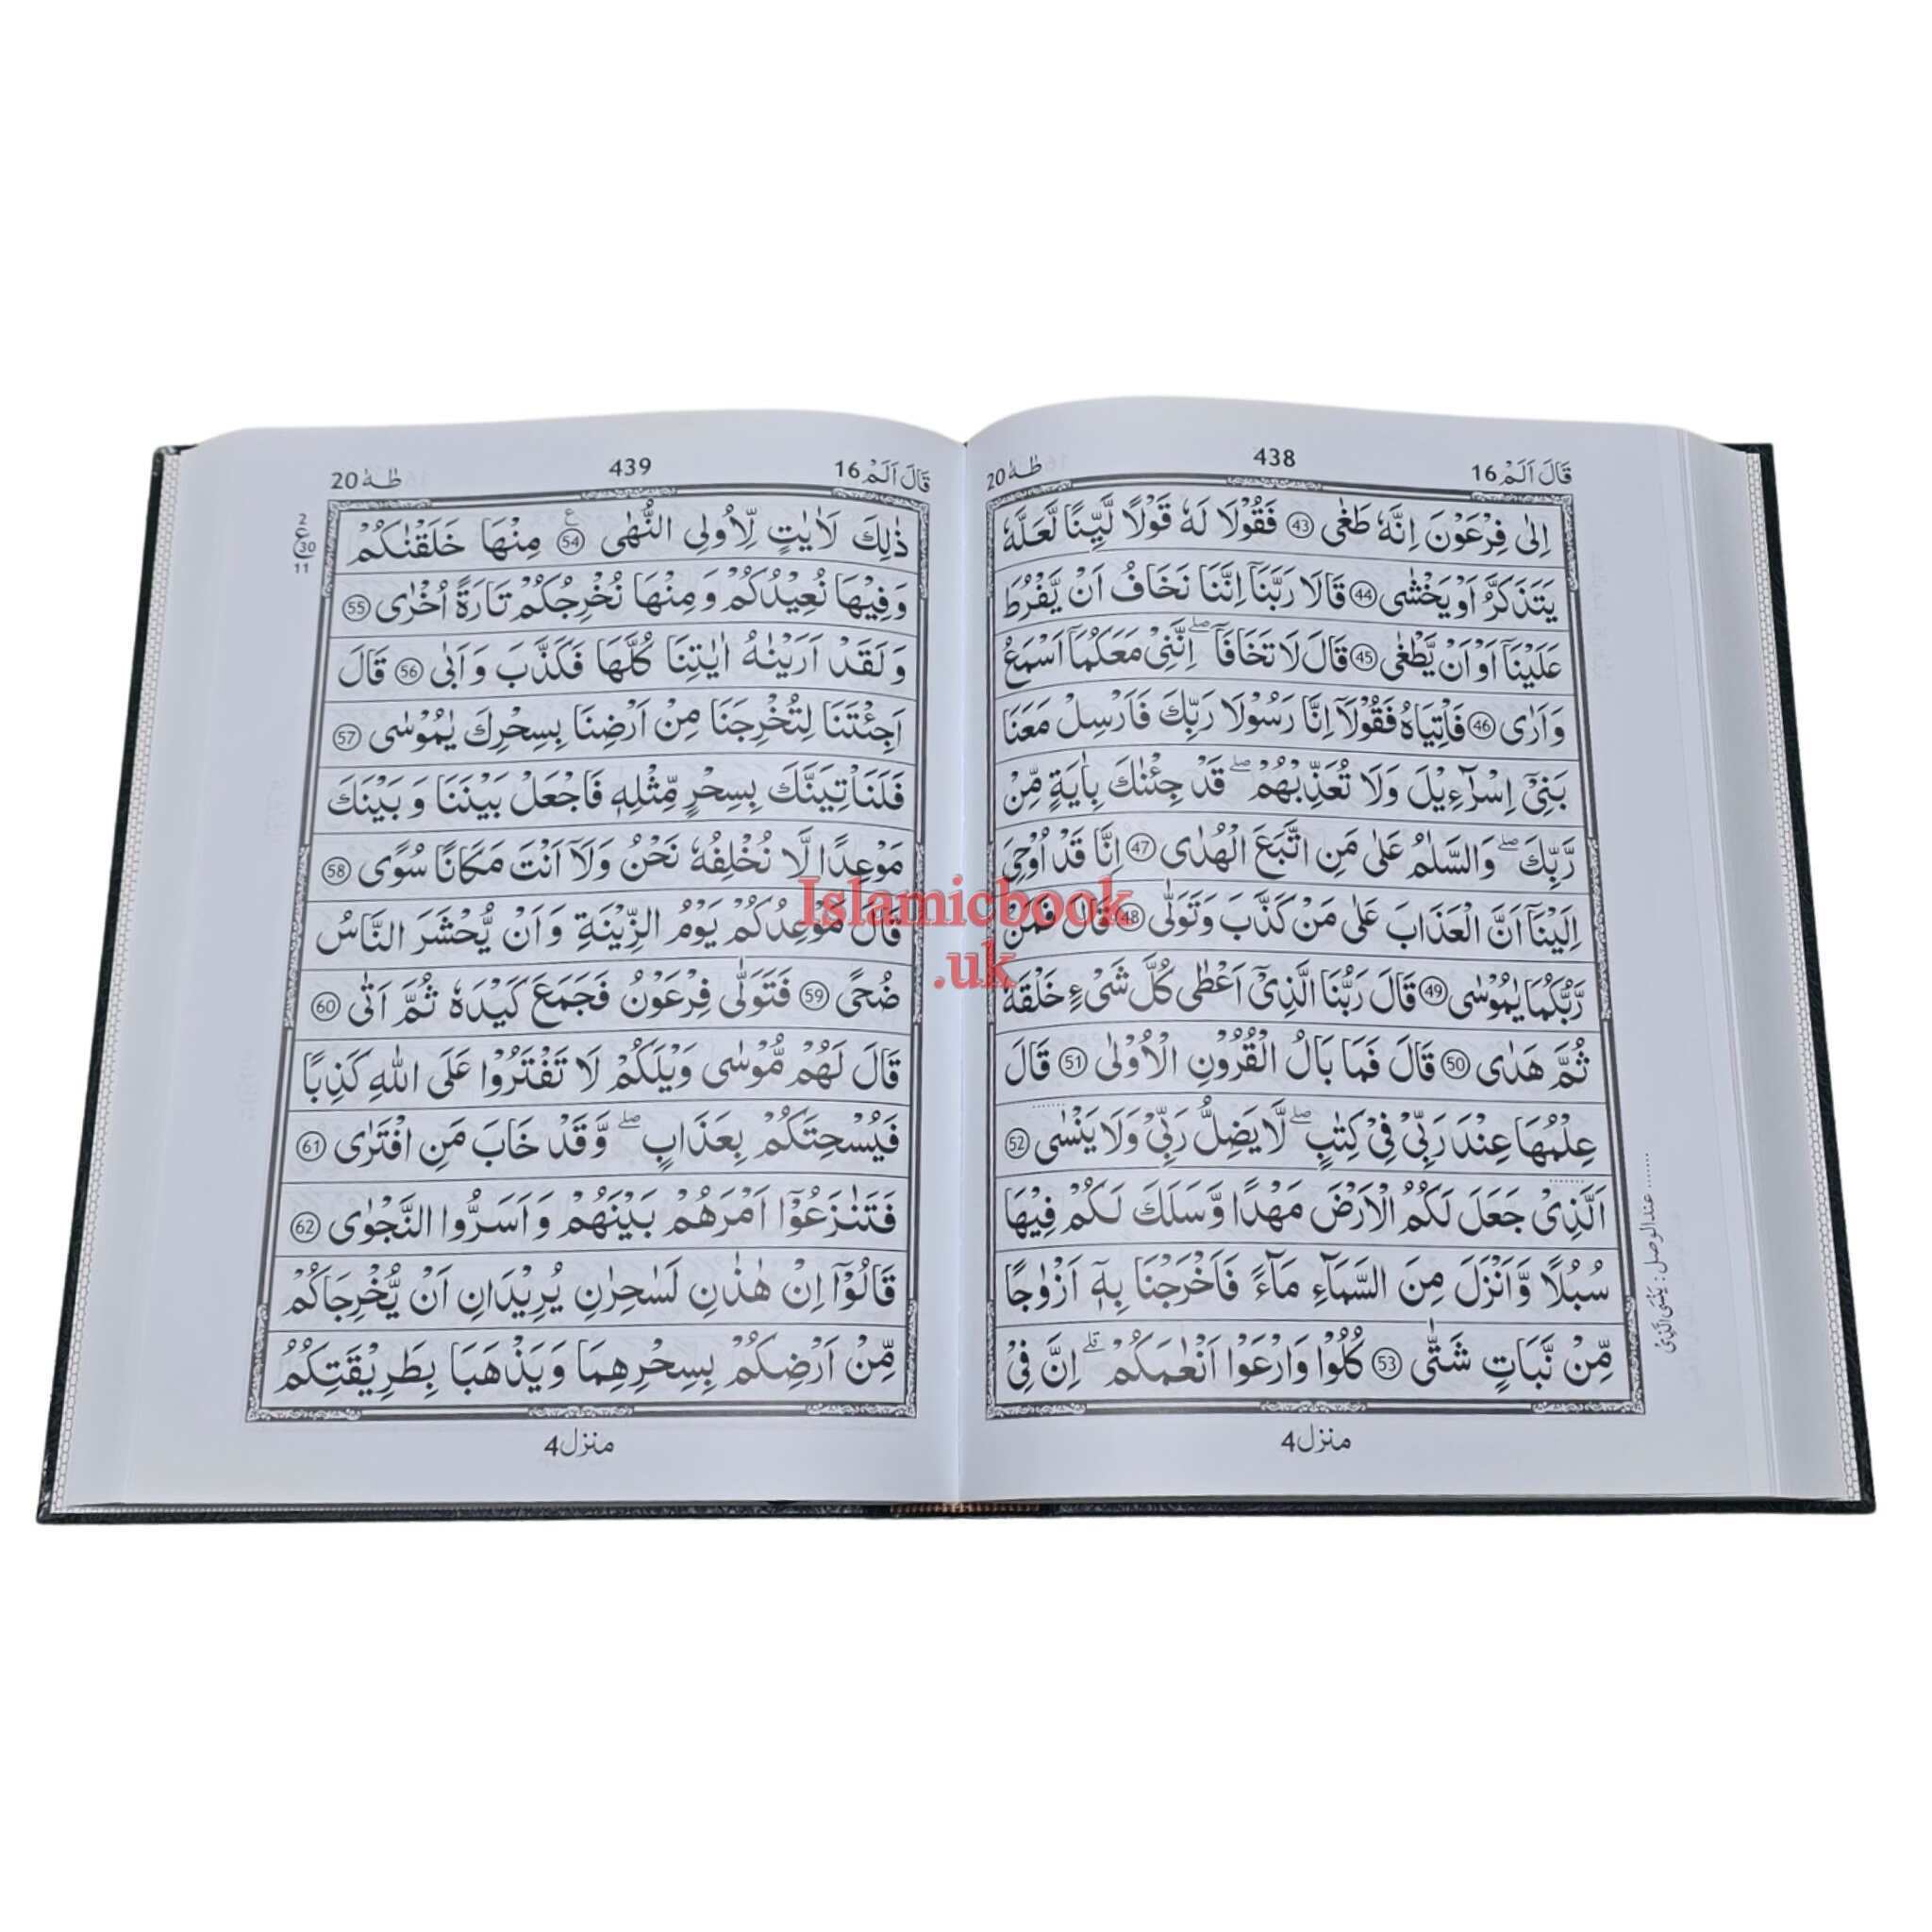 قَالَ اَلَمْ 16
438
طٰهٰ 20
اِلٰى فِرْعَوْنَ اِنَّهٗ طَغٰى ۴3 فَقُوْلَا لَهٗ قَوْلًا لَّيِّنًا لَّعَلَّهٗ
يَتَذَكَّرُ اَوْ يَخْشٰى 44 قَالَا رَبَّنَاۤ اِنَّنَا نَخَافُ اَنْ يَّفْرُطَ
عَلَيْنَاۤ اَوْ اَنْ يَّطْغٰى 45 قَالَ لَا تَخَافَاۤ ۖ اِنَّنِيْ مَعَكُمَاۤ اَسْمَعُ
وَاَرٰى 46 فَاْتِيَاهُ فَقُوْلَاۤ اِنَّا رَسُوْلَا رَبِّكَ فَاَرْسِلْ مَعَنَا
بَنِيْۤ اِسْرَآءِيْلَ وَلَا تُعَذِّبْهُمْ ۖ قَدْ جِئْنٰكَ بِاٰيَةٍ مِّنْ
رَّبِّكَ ۖ وَالسَّلٰمُ عَلٰى مَنِ اتَّبَعَ الْهُدٰى 47 اِنَّا قَدْ اُوْحِيَ
اِلَيْنَاۤ اَنَّ الْعَذَابَ عَلٰى مَنْ كَذَّبَ وَتَوَلّٰى 48 قَالَ فَمَنْ
رَّبُّكُمَا يٰمُوْسٰى 49 قَالَ رَبُّنَا الَّذِيْۤ اَعْطٰى كُلَّ شَيْءٍ خَلْقَهٗ
ثُمَّ هَدٰى 50 قَالَ فَمَا بَالُ الْقُرُوْنِ الْاُوْلٰى 51 قَالَ
عِلْمُهَا عِنْدَ رَبِّيْ فِيْ كِتٰبٍ ۖ لَا يَضِلُّ رَبِّيْ وَلَا يَنْسٰى 52
اَلَّذِيْ جَعَلَ لَكُمُ الْاَرْضَ مَهْدًا وَّسَلَكَ لَكُمْ فِيْهَا
سُبُلًا وَّاَنْزَلَ مِنَ السَّمَآءِ مَآءً فَاَخْرَجْنَا بِهٖۤ اَزْوٰجًا
مِّنْ نَّبَاتٍ شَتّٰى 53 كُلُوْا وَارْعَوْا اَنْعٰمَكُمْ ۗ اِنَّ فِيْ
منزل 4
عند الوصل : يَنْسَى الَّذِيْ
قَالَ اَلَمْ 16
439
طٰهٰ 20
2
ع
30
11
ذٰلِكَ لَاٰيٰتٍ لِّاُولِى النُّهٰى 54 ع مِنْهَا خَلَقْنٰكُمْ
وَفِيْهَا نُعِيْدُكُمْ وَمِنْهَا نُخْرِجُكُمْ تَارَةً اُخْرٰى 55
وَلَقَدْ اَرَيْنٰهُ اٰيٰتِنَا كُلَّهَا فَكَذَّبَ وَاَبٰى 56 قَالَ
اَجِئْتَنَا لِتُخْرِجَنَا مِنْ اَرْضِنَا بِسِحْرِكَ يٰمُوْسٰى 57
فَلَنَاْتِيَنَّكَ بِسِحْرٍ مِّثْلِهٖ فَاجْعَلْ بَيْنَنَا وَبَيْنَكَ
مَوْعِدًا لَّا نُخْلِفُهٗ نَحْنُ وَلَاۤ اَنْتَ مَكَانًا سُوًى 58
قَالَ مَوْعِدُكُمْ يَوْمُ الزِّيْنَةِ وَاَنْ يُّحْشَرَ النَّاسُ
ضُحًى 59 فَتَوَلّٰى فِرْعَوْنُ فَجَمَعَ كَيْدَهٗ ثُمَّ اَتٰى 60
قَالَ لَهُمْ مُّوْسٰى وَيْلَكُمْ لَا تَفْتَرُوْا عَلَى اللّٰهِ كَذِبًا
فَيُسْحِتَكُمْ بِعَذَابٍ ۖ وَقَدْ خَابَ مَنِ افْتَرٰى 61
فَتَنٰزَعُوْۤا اَمْرَهُمْ بَيْنَهُمْ وَاَسَرُّوا النَّجْوٰى 62
قَالُوْۤا اِنْ هٰذٰنِ لَسٰحِرٰنِ يُرِيْدَانِ اَنْ يُّخْرِجَاكُمْ
مِّنْ اَرْضِكُمْ بِسِحْرِهِمَا وَيَذْهَبَا بِطَرِيْقَتِكُمُ
منزل 4
Islamicbook
.uk